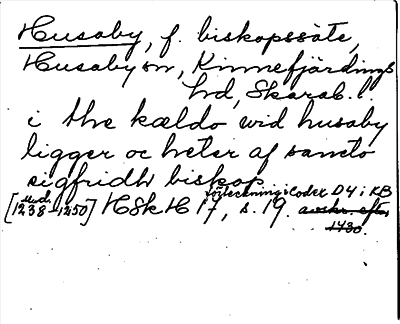 Husaby, f. biskopssäte,
Husaby sn, Kinnefjärdings
hd, Skarab. l.
i the kældo wid husaby
ligger oc heter af sancto
sigfridh biskop
förteckning i Codex D4 i KB
[mel. 1238-1250] HSkH 17, s. 19. avskr. efter
1430.